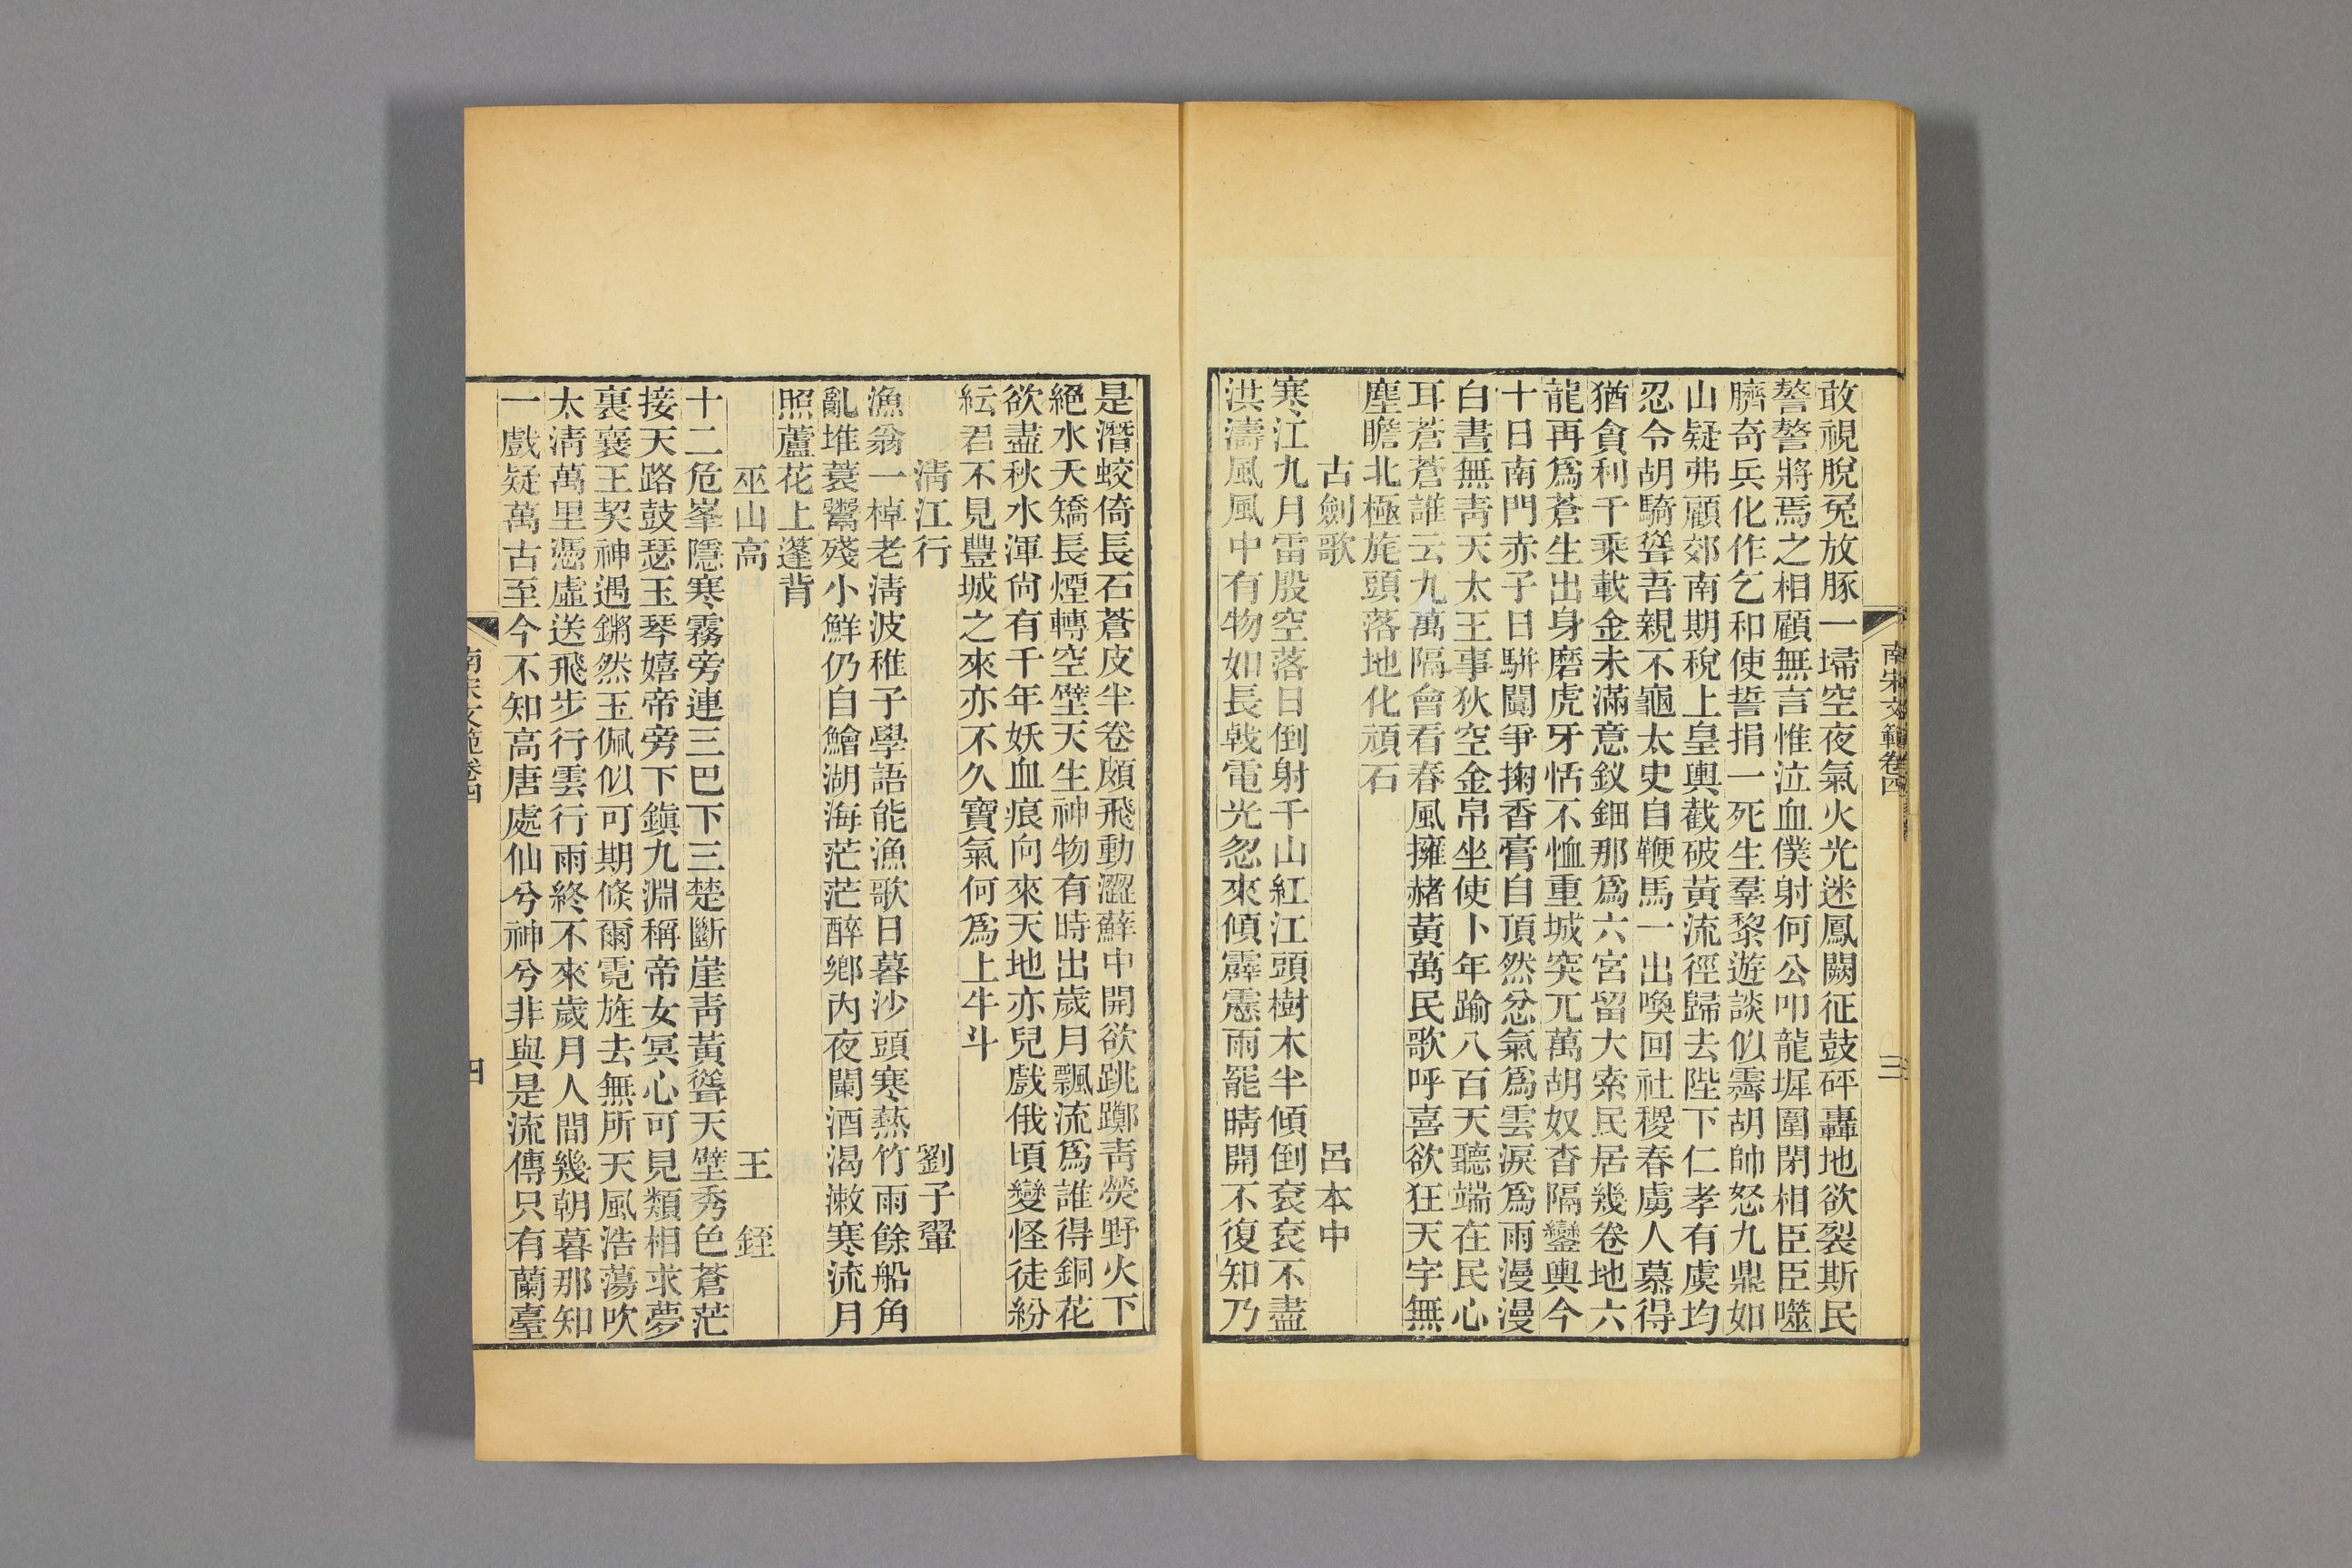 南宋文範卷四
三
敢視脫兔放豚一埽空夜氣火光迷鳳闕征鼓砰轟地欲裂斯民
嫯嫯將焉之相顧無言惟泣血僕射何公叩龍墀圍閉相臣臣噬
臍奇兵化作乞和使誓捐一死生羣黎遊談似霽胡帥怒九鼎如
山疑弗顧郊南期稅上皇輿截破黃流徑歸去陛下仁孝有虞均
忍令胡騎聳吾親不龜太史自鞭馬一出喚回社稷春虜人慕得
猶貪利千乘載金未滿意釵鈿那爲六宮留大索民居幾卷地六
龍再爲蒼生出身磨虎牙恬不恤重城突兀萬胡奴杳隔鑾輿今
十日南門赤子日駢闐爭掬香膏自頂然忿氣爲雲淚爲雨漫漫
白晝無靑天太王事狄空金帛坐使卜年踰八百天聽端在民心
耳蒼蒼誰云九萬隔會看春風擁赭黃萬民歌呼喜欲狂天宇無
塵瞻北極旄頭落地化頑石
古劍歌　呂本中
寒江九月雷殷空落日倒射千山紅江頭樹木半傾倒袞袞不盡
洪濤風風中有物如長戟電光忽來傾霹靂雨罷晴開不復知乃
是潛蛟倚長石蒼皮半卷頗飛動澀蘚中開欲跳躑靑熒野火下
絕水夭矯長煙轉空壁天生神物有時出歲月飄流爲誰得銅花
欲盡秋水渾尙有千年妖血痕向來天地亦兒戲俄頃變怪徒紛
紜君不見豐城之來亦不久寶氣何爲上牛斗
淸江行　劉子翬
漁翁一棹老淸波稚子學語能漁歌日暮沙頭寒爇竹雨餘船角
亂堆蓑鬻殘小鮮仍自鱠湖海茫茫醉鄕內夜闌酒渴漱寒流月
照蘆花上蓬背
巫山高　王銍
十二危峯隱寒霧旁連三巴下三楚斷崖靑黃聳天壁秀色蒼茫
接天路鼓瑟玉琴嬉帝旁下鎭九淵稱帝女冥心可見類相求夢
裏襄王契神遇鏘然玉佩似可期倏爾霓旌去無所天風浩蕩吹
太淸萬里憑虛送飛步行雲行雨終不來歲月人間幾朝暮那知
一戲疑萬古至今不知高唐處仙兮神兮非與是流傳只有蘭臺
南宋文範卷四
四